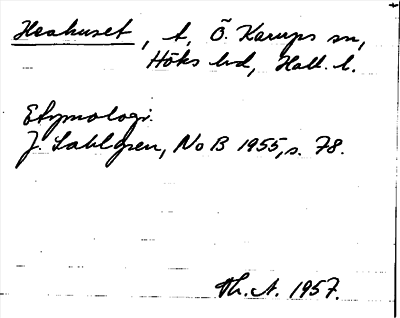 Heahuset, t, Ö. Karups sn,
Höks hd, Hall. l.
Etymologi.
J. Sahlgren, NoB 1955, s. 78.
Th. A. 1957.